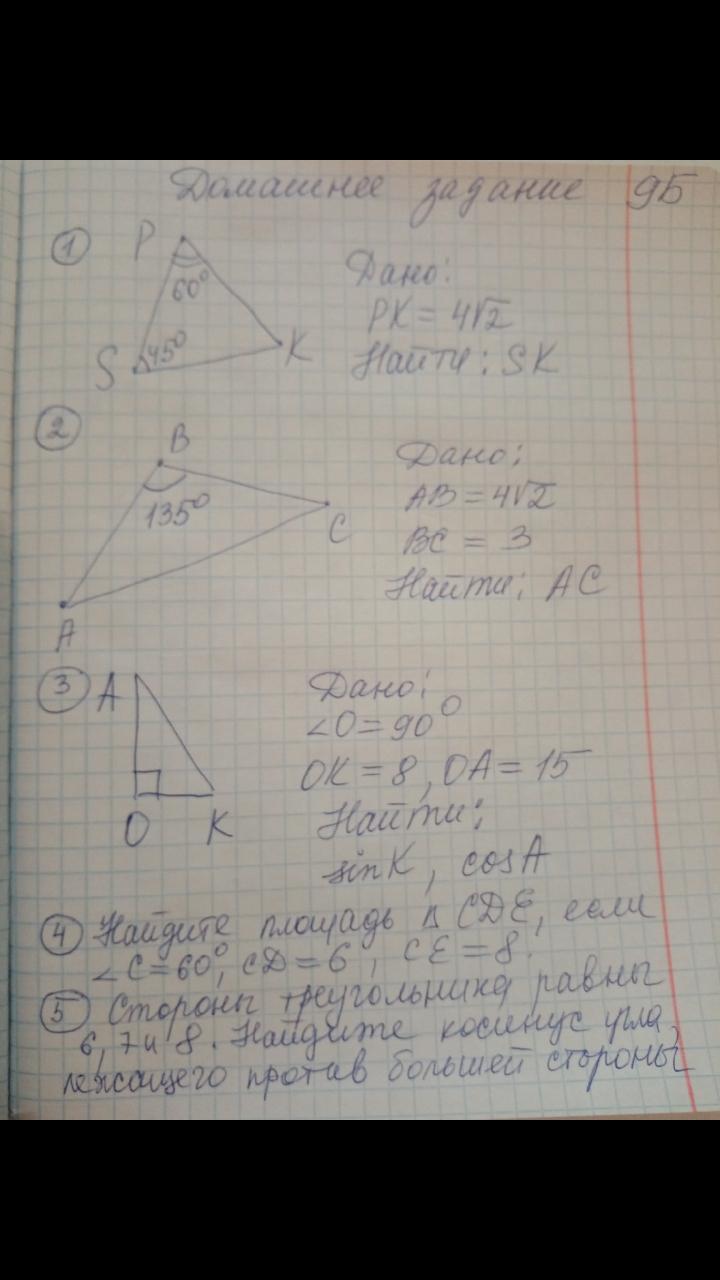 Домашнее задание 9Б
1
P
60°
S
45°
K
Дано:
PK = 4√2
Найти: SK
2
B
135°
C
A
Дано:
AB = 4√2
BC = 3
Найти: AC
3
A
O
K
Дано:
∠O = 90°
OK = 8, OA = 15
Найти:
sinK, cosA
4 Найдите площадь Δ CDE, если
∠C = 60°, CD = 6, CE = 8.
5 Стороны треугольника равны
6, 7 и 8. Найдите косинус угла,
лежащего против большей стороны